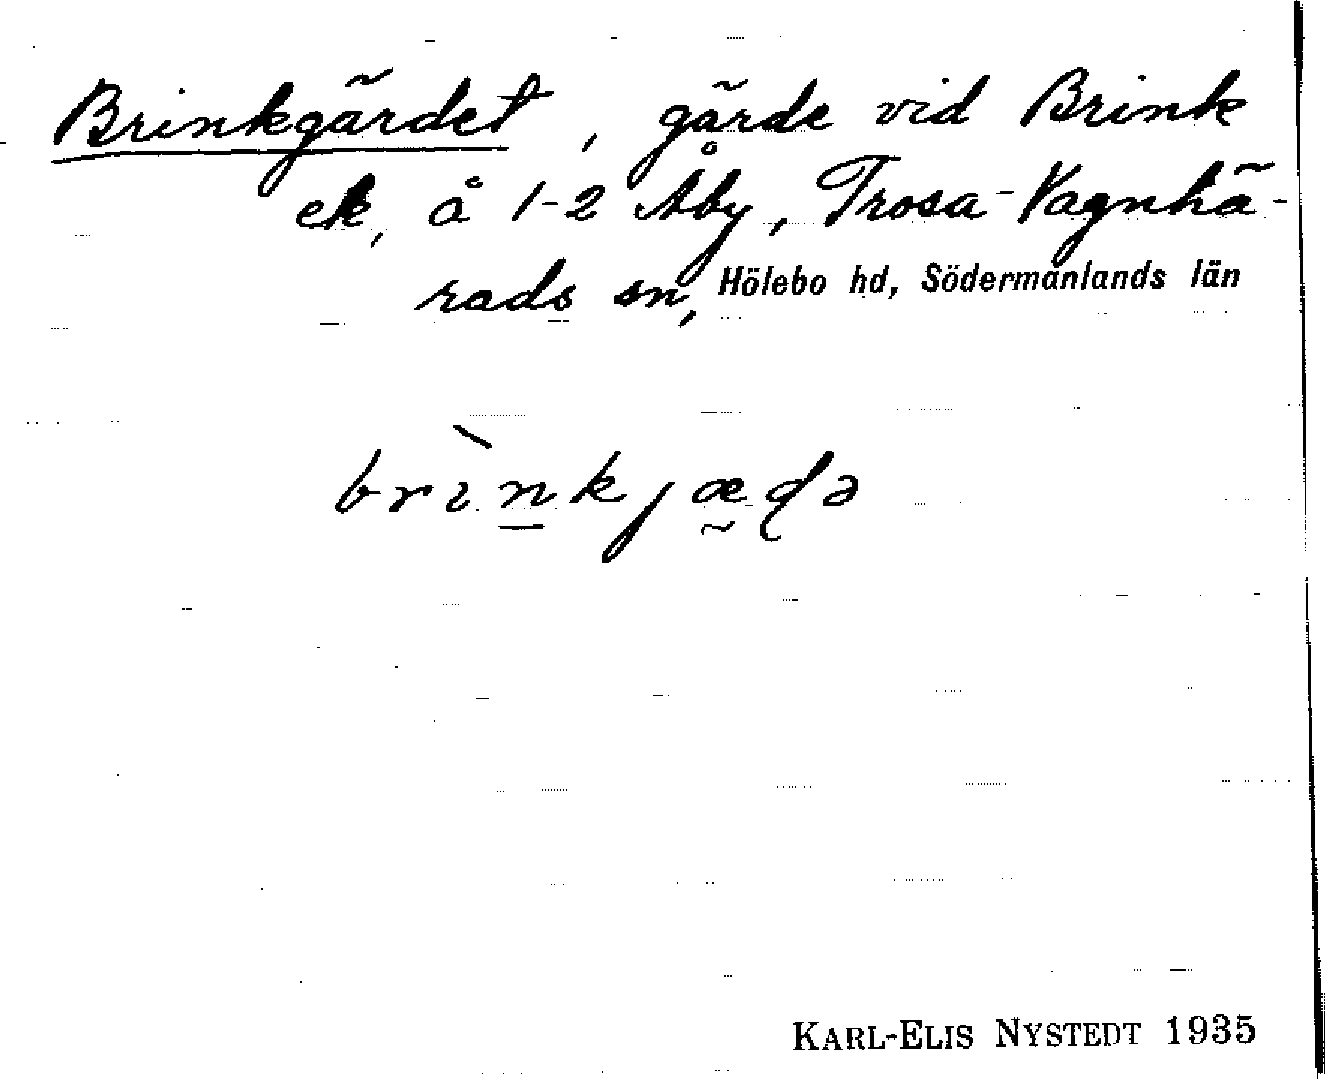 Brinkgärdet, gärde vid Brink
ek, å 1-2 Åby, Trosa-Vagnhä-
rads sn, Hölebo hd, Södermanlands län
brìn̲kjæ̰ɖə
KARL-ELIS NYSTEDT 1935